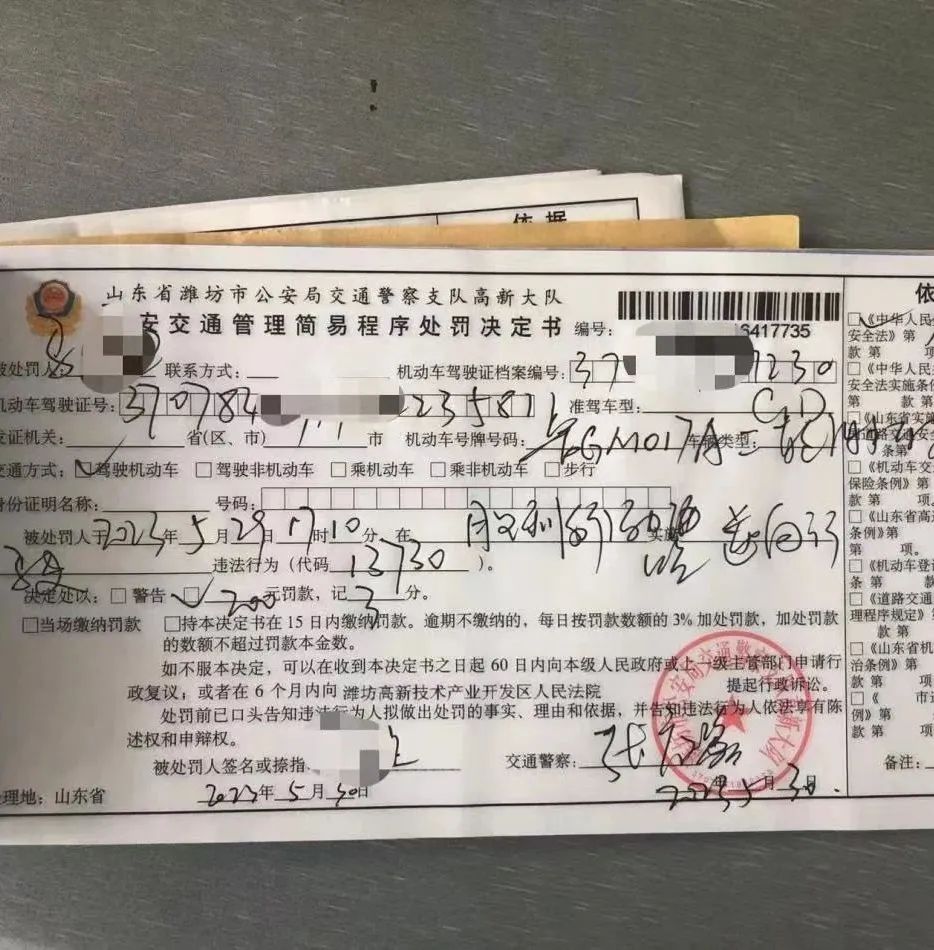 依据
山东省潍坊市公安局交通警察支队高新大队
安交通管理简易程序处罚决定书 编号: 6417735
被处罚人 联系方式: 机动车驾驶证档案编号: 37 1230
机动车驾驶证号: 370784 223581 准驾车型: C1D
发证机关: 省(区、市) 市 机动车号牌号码: GM017 车辆类型:
交通方式: 驾驶机动车 □驾驶非机动车 □乘机动车 □乘非机动车 □步行
身份证明名称: 号码:
被处罚人于2023年5月29日17时10分 在 胜利街 实施 逆向行
违法行为(代码 13730 )。
决定处以: □警告 200元罚款, 记3分。
□当场缴纳罚款 □持本决定书在15日内缴纳罚款。逾期不缴纳的, 每日按罚款数额的3%加处罚款, 加处罚款
的数额不超过罚款本金数。
如不服本决定, 可以在收到本决定书之日起60日内向本级人民政府或上一级主管部门申请行
政复议; 或者在6个月内向 潍坊高新技术产业开发区人民法院 提起行政诉讼。
处罚前已口头告知违法行为人拟做出处罚的事实、理由和依据, 并告知违法行为人依法享有陈
述权和申辩权。
被处罚人签名或捺指 交通警察:
处理地: 山东省 2023年5月30日 2023年5月30日
依
□《中华人民
安全法》第
款 第 项
□《中华人民
安全法实施条
款 第
□《山东省实施
道路交通安全
条第
□《机动车交
保险条例》第
款 第 项
□《山东省高速
条例》第
第 项。
□《机动车登记
条 第 款
□《道路交通
理程序规定》
款 第
□《山东省机
治条例》第
款 第 项
□《 市道
例》第
款 第 项
备注: